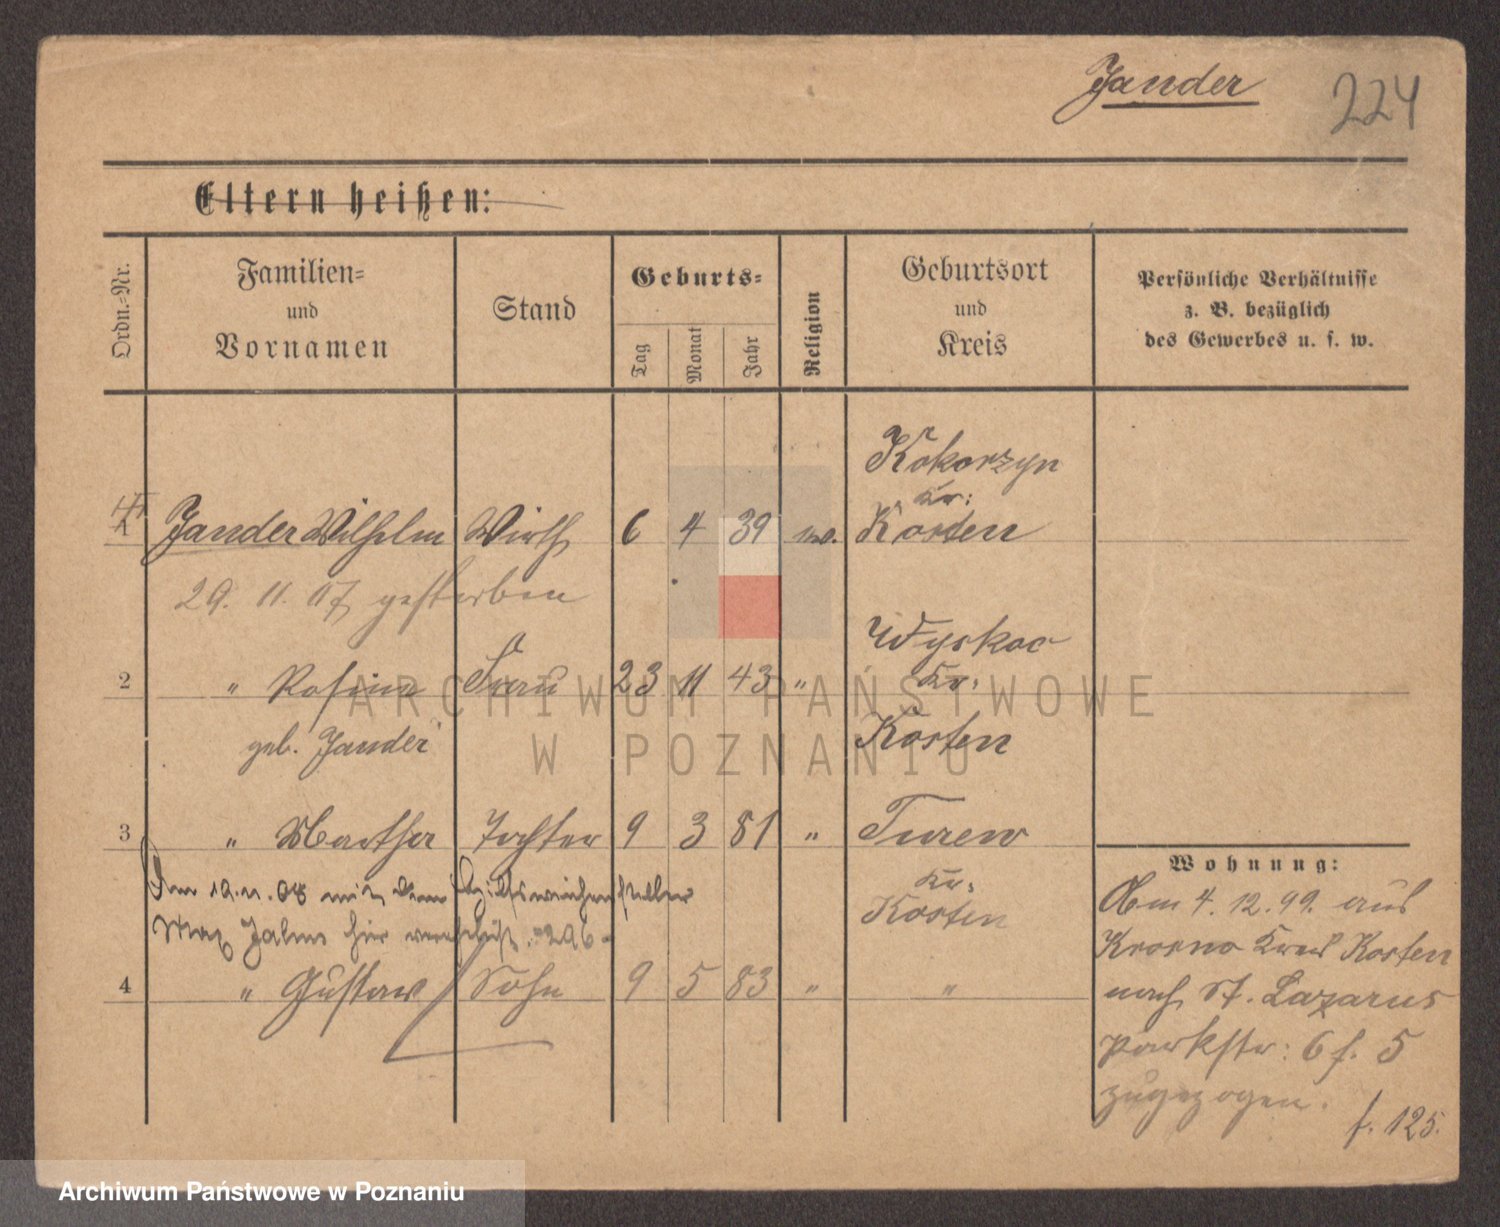 Jander 224
Eltern heißen:
Ordn.-Nr.
Familien=
und
Vornamen
Stand
Geburts=
Tag
Monat
Jahr
Religion
Geburtsort
und
Kreis
Persönliche Verhältnisse
z. B. bezüglich
des Gewerbes u. s. w.
Kokorzyn
Kr:
1 Jander Wilhelm Wirth 6 4 39 Kosten
29. 11. 07 gestorben
Wyskoc
2 " Rosina Frau 23 11 43 " Kr.
geb. Jander Kosten
3 " Martha Tochter 9 3 81 " Turew
Kr.
Kosten
Am 10.11.08 mit dem Hilfsweichensteller
Max Jahns hier
4 " Gustav Sohn 9 5 83 " "
Wohnung:
Am 4. 12. 99. aus
Krosno Kreis Kosten
nach St. Lazarus
Parkstr: 6 f. 5
zugezogen.
f. 125.
ARCHIWUM PAŃSTWOWE
W POZNANIU
Archiwum Państwowe w Poznaniu